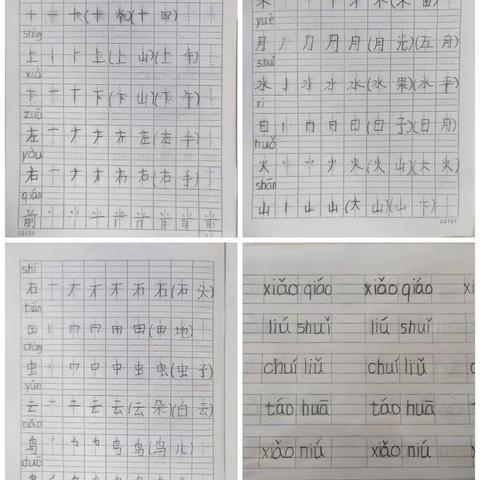 shàng
上 丨 卜 上 上(上 山)(上 午)
xià
下 一 丅 下 下(下 山)(下 午)
zuǒ
左 一 ナ 左 左(左 手)
yòu
右 一 ナ 右 右(右 手)
qián
前
yuè
月 丿 刀 月 月(月 光)(五 月)
shuǐ
水 亅 水 水 水(水 果)(水 平)
rì
日 丨 冂 日 日(日 子)(日 月)
huǒ
火 丶 丷 火 火(火 山)(大 火)
shān
山 丨 山 山(大 山)(山 下)
shí
石 一 丆 石 石 石(石 头)
tián
田 丨 冂 田 田(田 地)
chóng
虫 丨 口 中 虫 虫(虫 子)
yún
云 一 二 云 云(云 朵)(白 云)
niǎo
鸟 鸟 鸟(鸟 儿)
duǒ
xiǎo qiáo xiǎo qiáo xi
liú shuǐ liú shuǐ
chuí liǔ chuí liǔ c
táo huā táo huā t
xiǎo niú xiǎo niú x